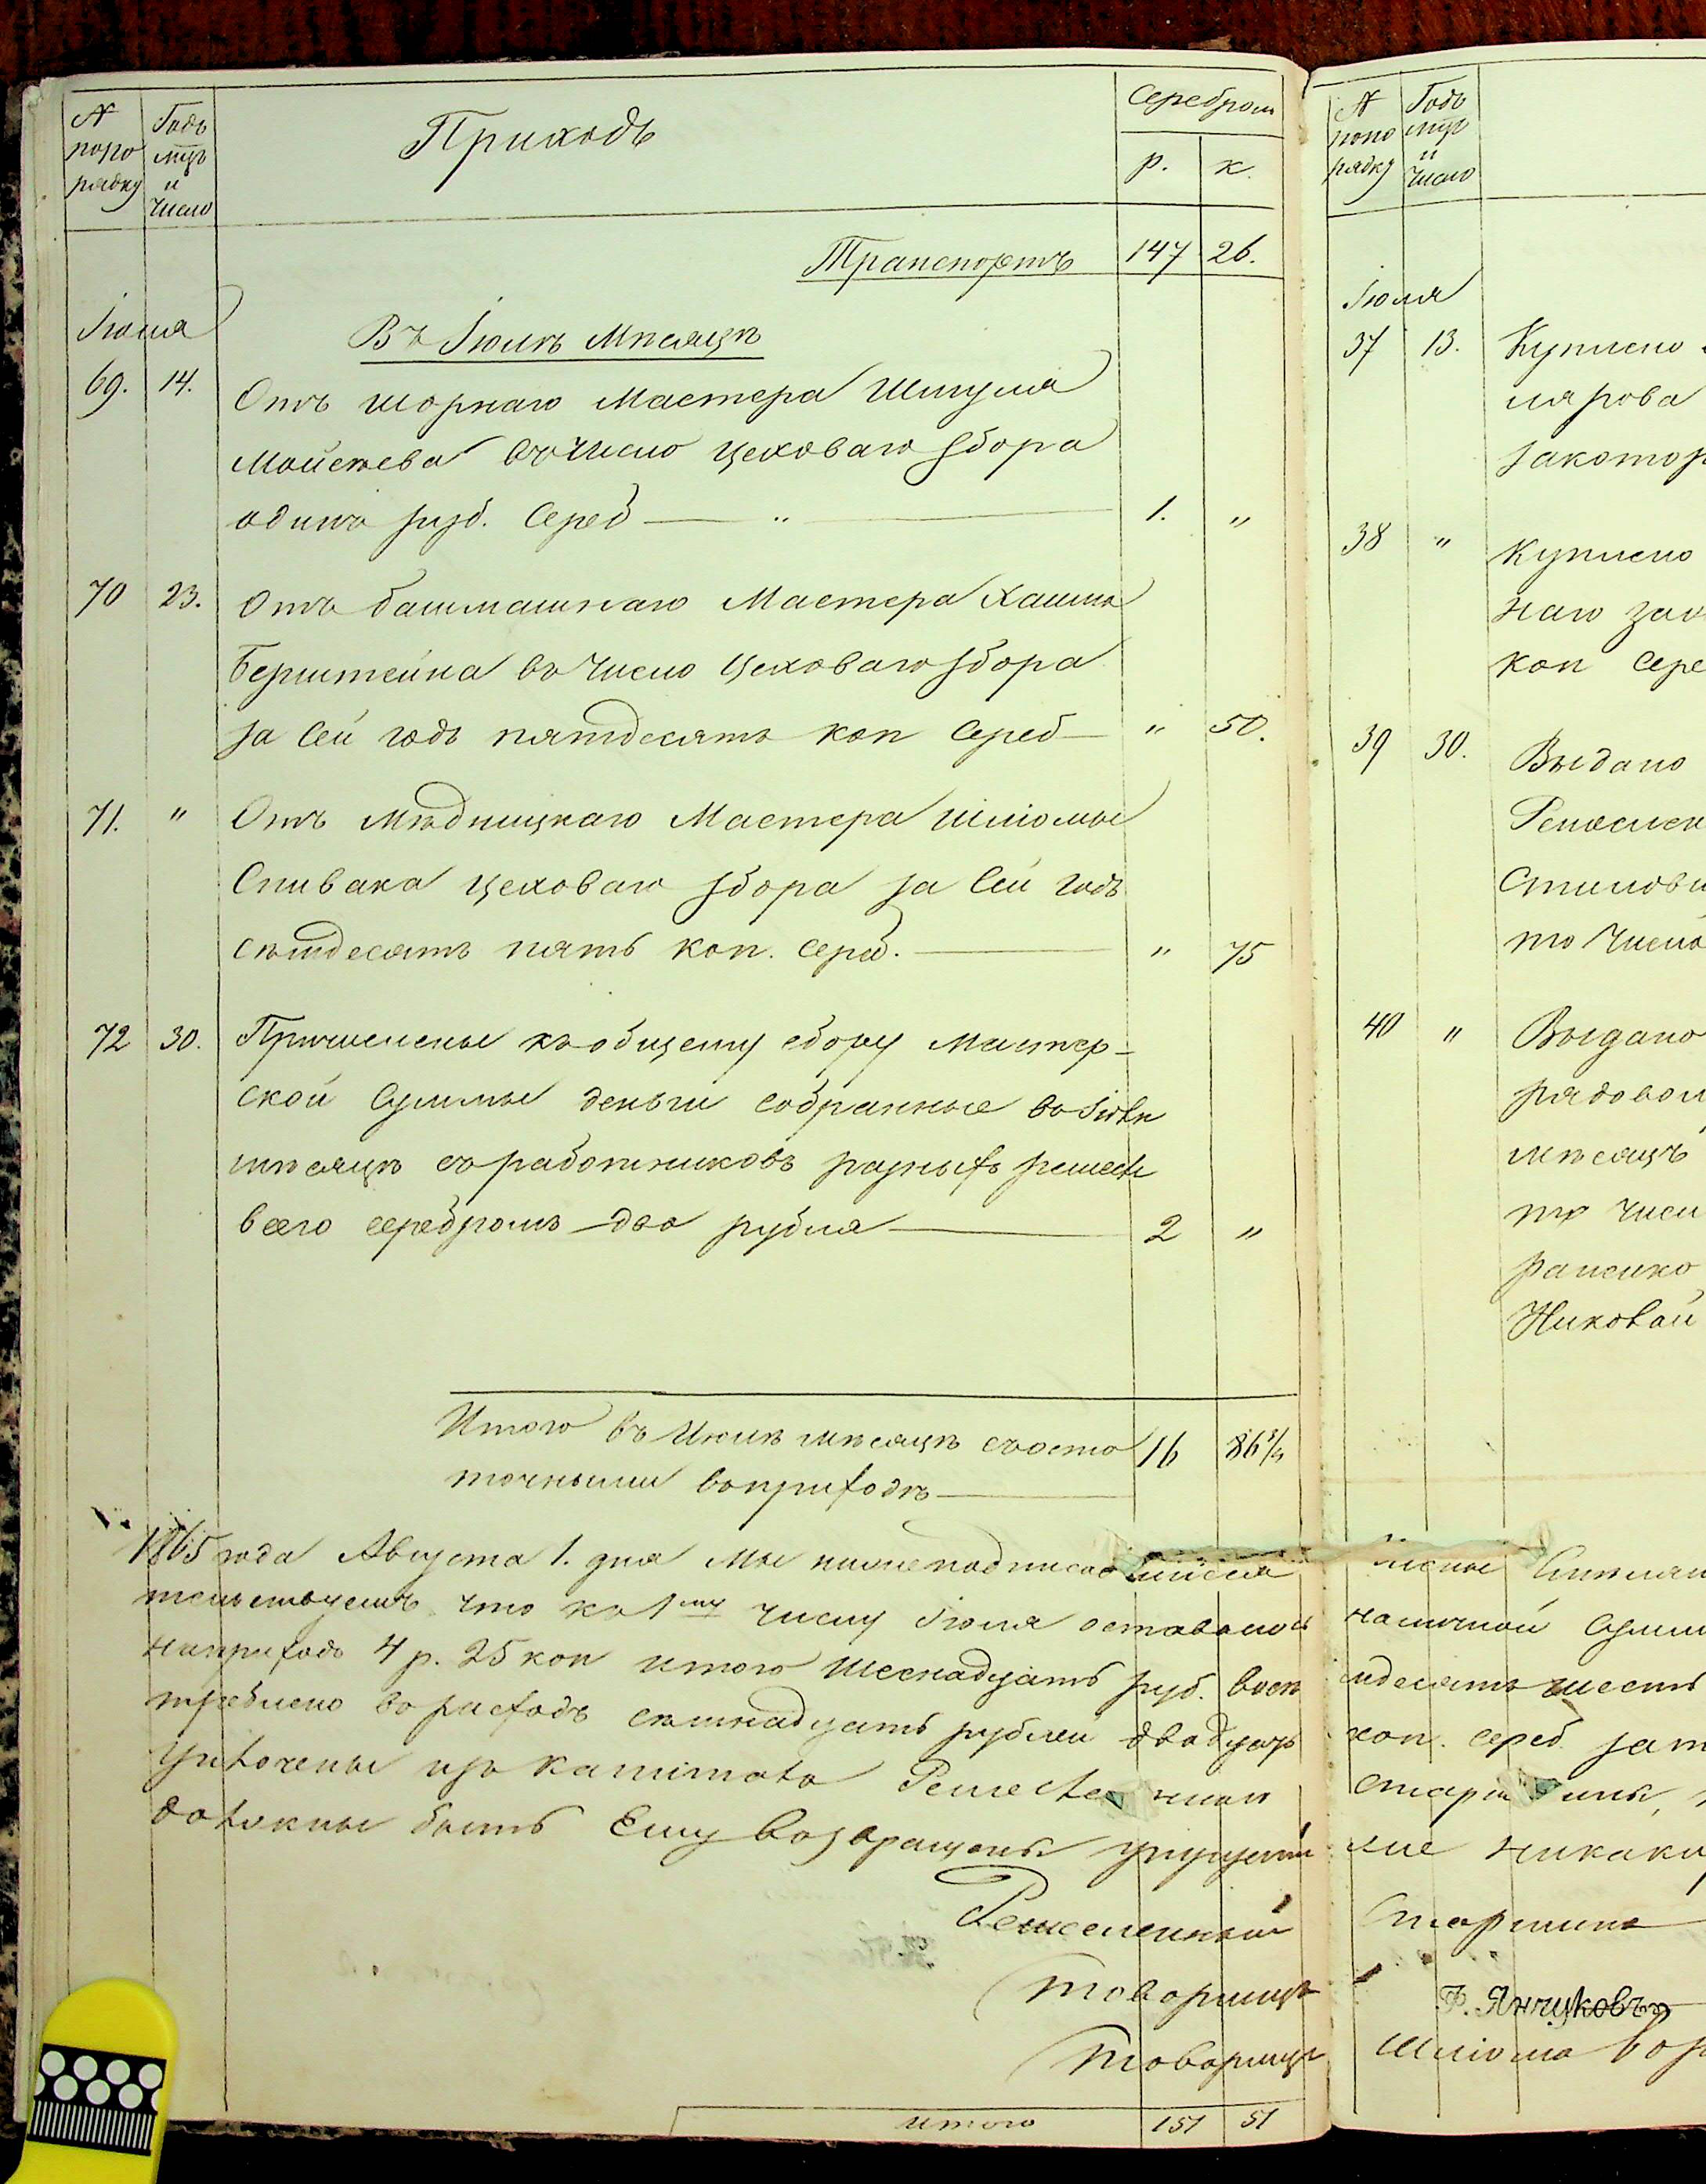 № Годъ Приходъ Серебром
попо мцъ
рядку и р. к.
число
Транспортъ 147 26.
Iюля Въ Iюлѣ Мѣсяцѣ
69. 14. Отъ шорнаго Мастера Шмуля
въ число цеховаго сбора
одинъ руб. Сереб — " — 1. "
70 23. Отъ башмашнаго Мастера Хаима
Бернштейна въ число Цеховаго сбора
за Сей годъ пятдесятъ коп Сереб — " 50.
71. " Отъ Мѣдницкаго Мастера Шлiомы
Спивака цеховаго сбора за Сей годъ
сѣмдесятъ пять коп. Сереб. — " 75
72 30. Причислены къ общему сбору Мастер-
ской Суммы деньги собранные въ Iюлѣ
мѣсяцѣ съ работниковъ разныхъ ремеслъ
всего серебромъ два рубля — 2 "
Итого въ Июлѣ мѣсяцѣ съ оста 16 86 3/4
точными въ приходѣ —
1865 года Августа 1. дня Мы нижеподписавшiеся
тельствуемъ что къ 1му числу Iюля оставалось
наприходъ 4 р. 25 коп итого Шеснадцать руб. восѣ
треблено въ расходъ сѣмнадцать рублей двадцать
изъ капитала
должны быть Ему возвращены
Ремесленный
Товарищъ
Товарищъ
итого 151 51
№ Годъ
попо мцъ
рядку и
число
Iюля
37 13. Куплено
лярова
закотор
38 " Куплено
наго зак
коп Сере
39 30. Выдано
Ремеслен
то число
40 " Выдано
рядовом
мѣсяцъ
числ
Николай
члены
наличной Сумм
мдесятъ шесть
коп. сереб. зат
никаки
Старшина
Ф. Янчуковъ
Шлiома